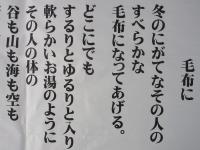 毛布に
冬のにがてなその人の
すべらかな
毛布になってあげる。
どこにでも
するりとゆるりと入り
軟らかいお湯のように
その人の体の
谷も山も海も空も